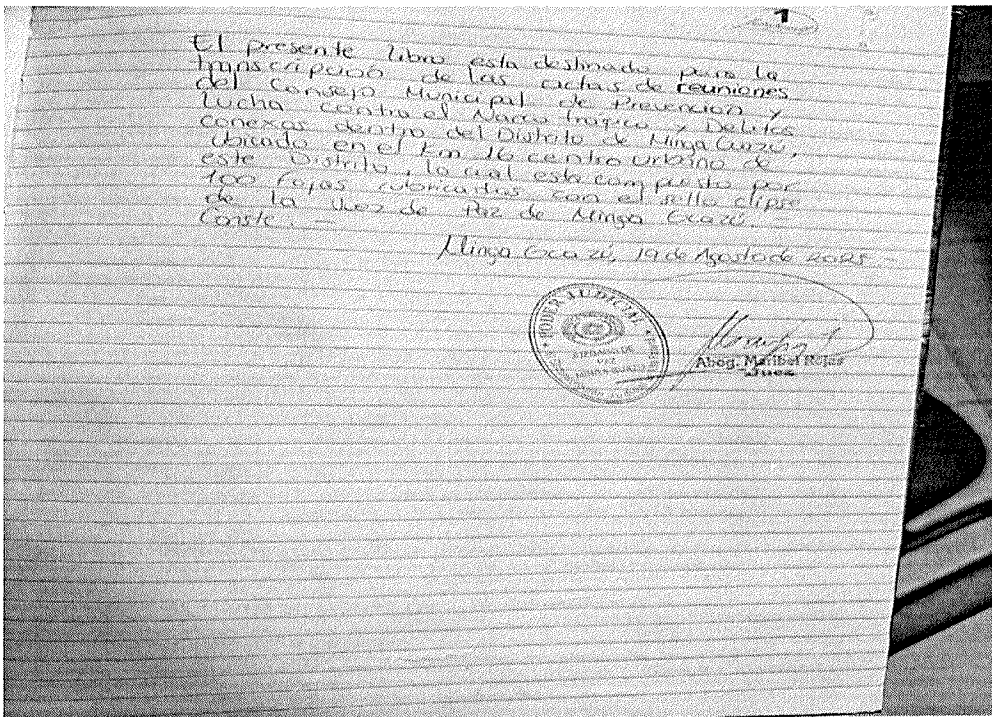 1
El presente libro esta destinado para la
transcripción de las actas de reuniones
del Consejo Municipal de Prevención y
Lucha contra el Narcotrafico y Delitos
conexos dentro del Distrito de Minga Guazú,
Ubicado en el Km 16 centro urbano de
este Distrito, la cual esta compuesto por
100 Fojas rubricadas con el sello clipse
de la Juez de Paz de Minga Guazú.
Conste.
Minga Guazú, 19 de Agosto de 2025.-
PODER JUDICIAL
JUZGADO DE
PAZ
MINGA GUAZU
Abog. Maribel Rojas
Juez